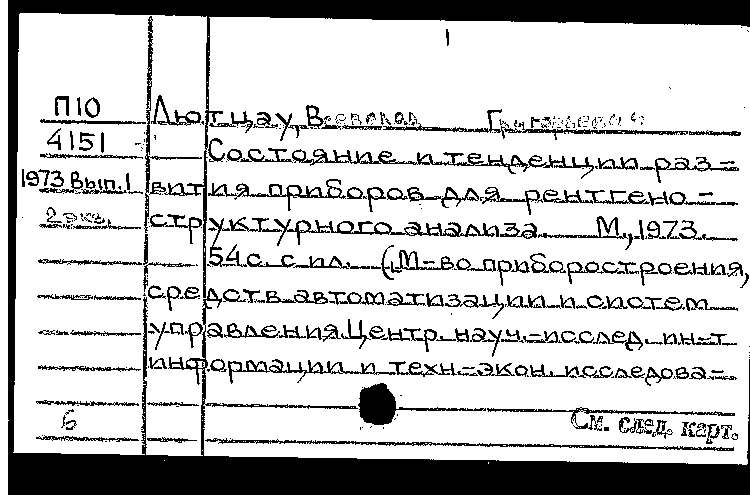 1
П10 Лютцау, Всеволод Григорьевич
4151 Состояние и тенденции раз-
1973 Вып.1 вития приборов для рентгено-
2 экз. структурного анализа. М., 1973.
54 с. с ил. (М-во приборостроения,
средств автоматизации и систем
управления. Центр. науч.-исслед. ин-т
информации и техн.-экон. исследова-
6 См. след. карт.